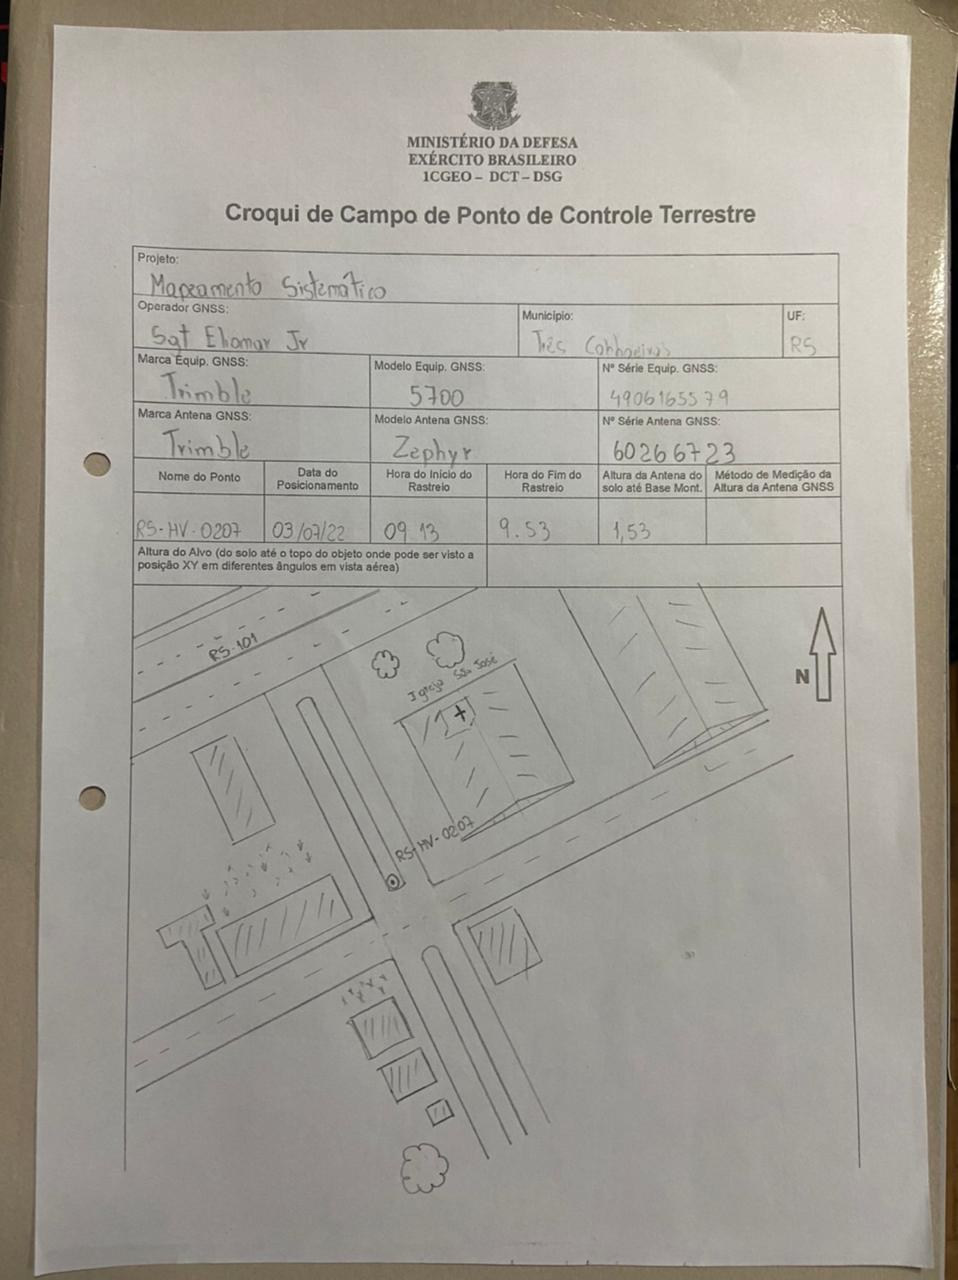 MINISTÉRIO DA DEFESA
EXÉRCITO BRASILEIRO
1CGEO – DCT – DSG
Croqui de Campo de Ponto de Controle Terrestre
Projeto:
Mapeamento Sistemático
Operador GNSS: Município: UF:
Sgt Eliomar Jr Três RS
Marca Equip. GNSS: Modelo Equip. GNSS: Nº Série Equip. GNSS:
Trimble 5700 4906165579
Marca Antena GNSS: Modelo Antena GNSS: Nº Série Antena GNSS:
Trimble Zephyr 60266723
Nome do Ponto Data do Posicionamento Hora do Início do Rastreio Hora do Fim do Rastreio Altura da Antena do solo até Base Mont. Método de Medição da Altura da Antena GNSS
RS-HV-0207 03/07/22 09 13 9.53 1,53
Altura do Alvo (do solo até o topo do objeto onde pode ser visto a
posição XY em diferentes ângulos em vista aérea)
RS-101
Igreja São José
N
RS-HV-0207